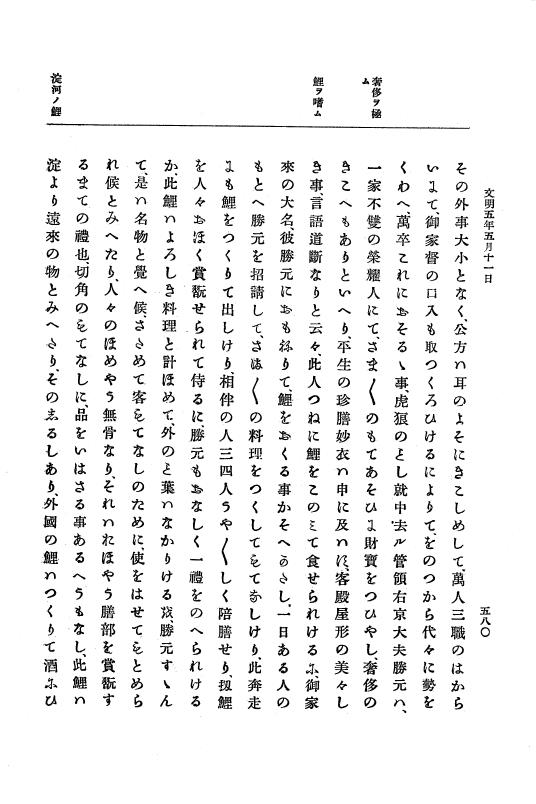 文明五年五月十一日
五八〇
奢侈ヲ極ム
鯉ヲ嗜ム
淀河ノ鯉
その外事大小となく、公方ハ耳のよそにきこしめして、萬人三職のはから
いまて、御家督の口入も取つくろひけるによりて、をのつから代々に勢を
くわへ、萬卒これにおそるゝ事、虎狼のとし、就中去ル管領右京大夫勝元ハ、
一家不雙の榮耀人にて、さま〱のもてあそひま財寶をつひやし、奢侈の
きこへもありといへり、平生の珍膳妙衣ハ申に及ハに、客殿屋形の美々し
き事、言語道斷なりと云々、此人つねに鯉をこのミて食せられけるに、御家
來の大名、彼勝元におもねりて、鯉をおくる事かそへかさし、一日ある人の
もとへ勝元を招請して、さま〱の料理をつくしてもてなしけり、此奔走
まも鯉をつくりて出しけり、相伴の人三四人うや〱しく陪膳せり、扨鯉
を人々おほく賞翫せられて侍るに、勝元もおなしく一禮をのへられける
か、此鯉ハよろしき料理と計ほめて、外のと葉ハなかりける故、勝元すゝん
て、是ハ名物と覺へ候、さゝめて客もてなしのために、使をはせてもとめら
れ候とみへたり、人々のほめやう無骨なり、それハねほやう膳部を賞翫す
るまての禮也、切角のもてなしに、品をいはさる事あるへうもなし、此鯉ハ
淀より遠來の物とみへさり、そのまるしあり、外國の鯉ハつくりて酒にひ